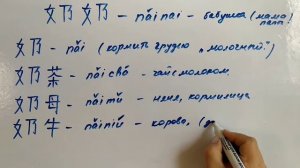 奶奶 – năi nai – бабушка (мама
папы
奶 – năi (кормить грудью „молочный")
奶茶 – năi chá – чай с молоком.
奶母 – năi mŭ – няня, кормилица
奶牛 – năi niú – корова, (